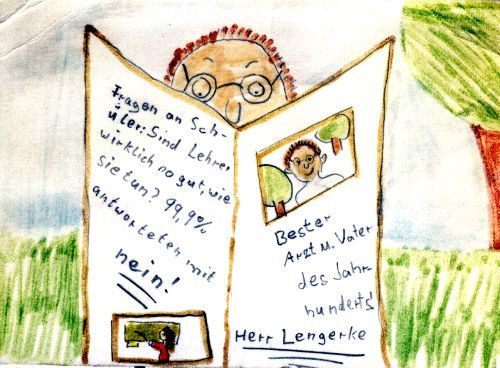 Fragen an Sch-
üler: Sind Lehrer
wirklich so gut, wie
sie tun? 99,9%
antworteten mit
nein!
Bester
Arzt u. Vater
des Jahr-
hunderts!
Herr Lengerke